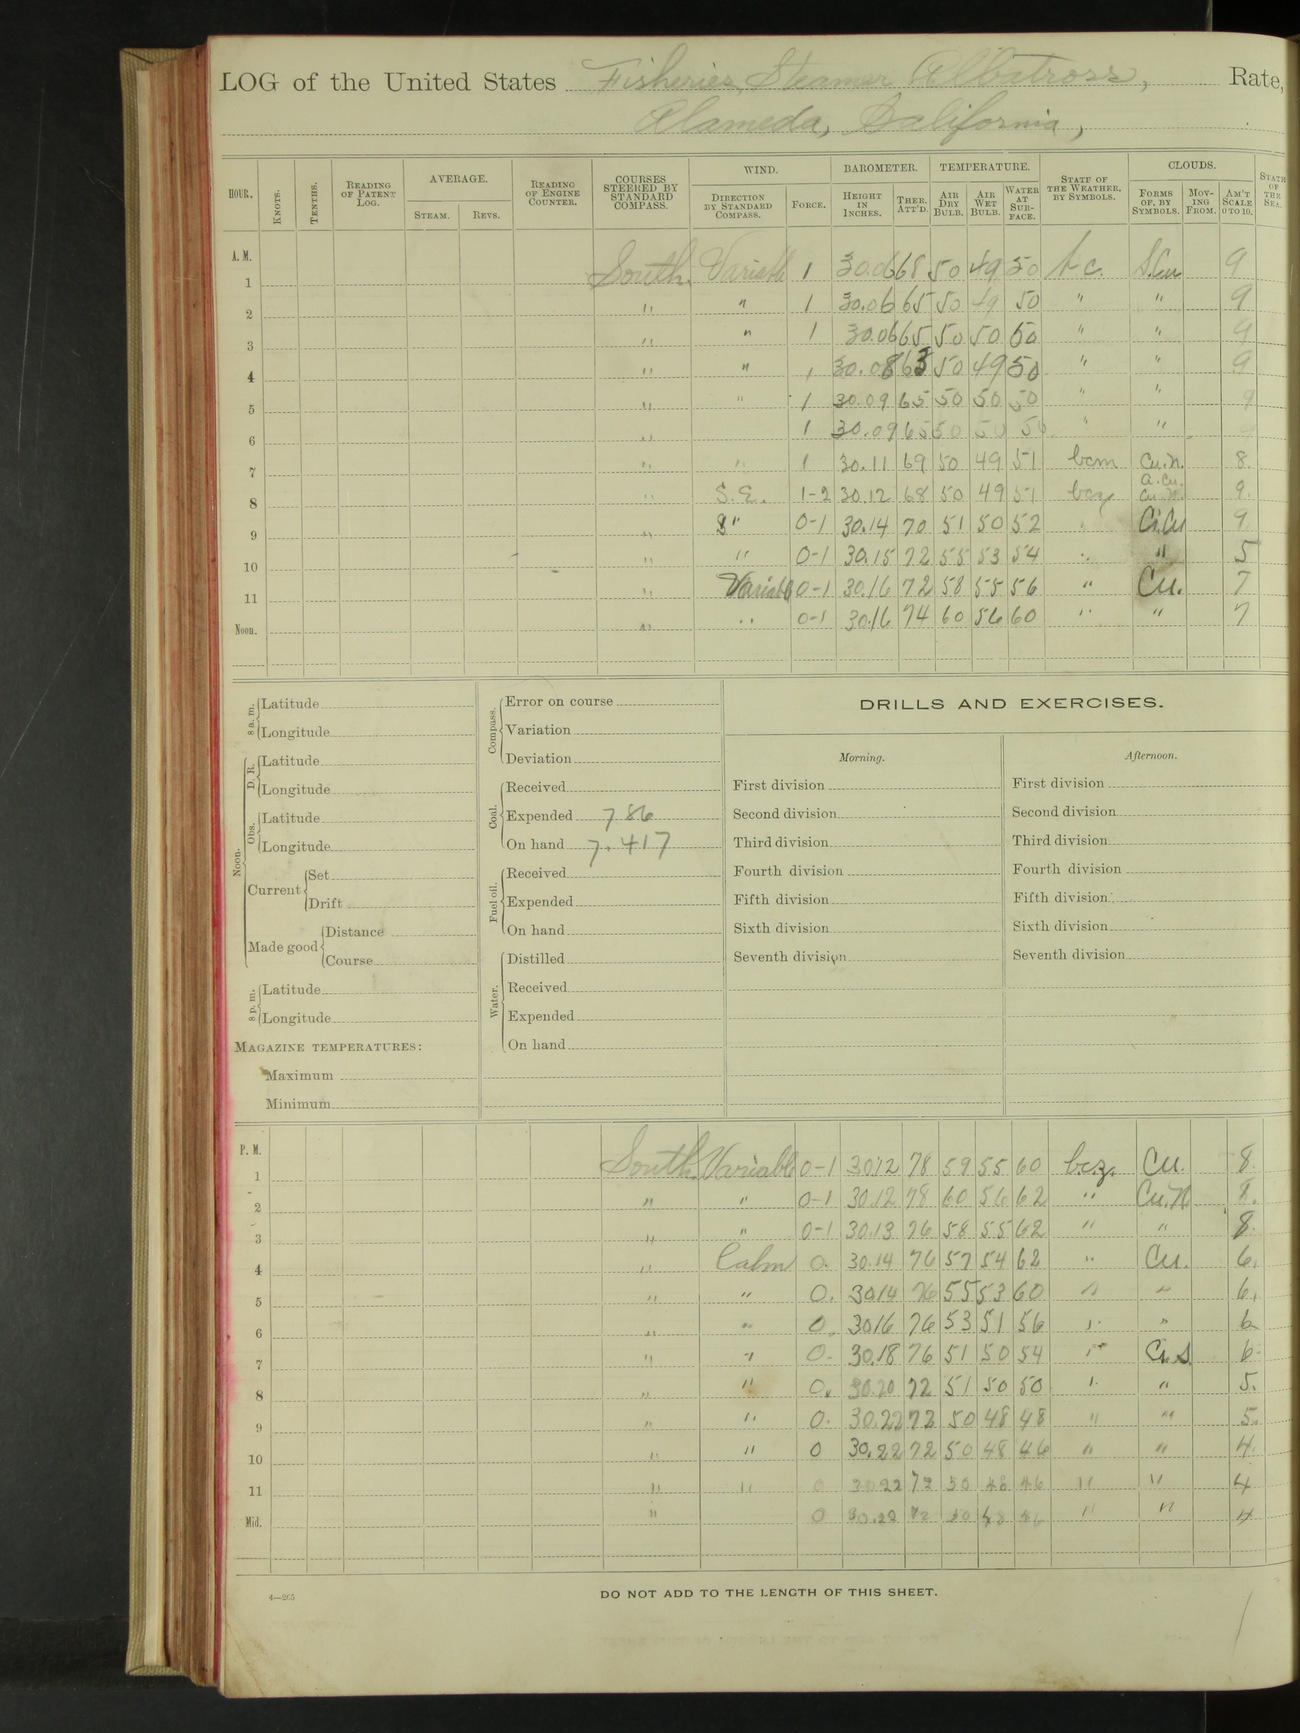 LOG of the United States Fisheries Steamer Albatross, Rate,
Alameda, California,
HOUR. KNOTS. TENTHS. READING OF PATENT LOG. AVERAGE. STEAM. REVS. READING OF ENGINE COUNTER. COURSES STEERED BY STANDARD COMPASS. WIND. DIRECTION BY STANDARD COMPASS. FORCE. BAROMETER. HEIGHT IN INCHES. THER. ATT'D. TEMPERATURE. AIR DRY BULB. AIR WET BULB. WATER AT SURFACE. STATE OF THE WEATHER, BY SYMBOLS. CLOUDS. FORMS OF, BY SYMBOLS. MOVING FROM. AM'T SCALE 0 TO 10. STATE OF THE SEA.
A. M.
1 South. Variable 1 30.06 68 50 49 50 b c. S.Cu 9
2 " " 1 30.06 65 50 49 50 " " 9
3 " " 1 30.06 65 50 50 50 " " 9
4 " " 1 30.08 63 50 49 50 " " 9
5 " " 1 30.09 65 50 50 50 " " 9
6 " 1 30.09 65 50 50 50 " "
7 " " 1 30.11 69 50 49 51 bcm Cu.N. 8.
8 " S.E. 1-2 30.12 68 50 49 51 bcz A.Cu. Cu.N. 9.
9 " " 0-1 30.14 70 51 50 52 " Ci.Cu 9.
10 " " 0-1 30.15 72 55 53 54 " " 5
11 " Variable 0-1 30.16 72 58 55 56 " Cu. 7
Noon. " " 0-1 30.16 74 60 56 60 " " 7
8 a. m. Latitude
Longitude
Noon. D. R. Latitude
Longitude
Obs. Latitude
Longitude
Current Set
Drift
Made good Distance
Course
8 p. m. Latitude
Longitude
MAGAZINE TEMPERATURES:
Maximum
Minimum
Compass. Error on course
Variation
Deviation
Coal. Received
Expended 786
On hand 7.417
Fuel oil. Received
Expended
On hand
Water. Distilled
Received
Expended
On hand
DRILLS AND EXERCISES.
Morning. Afternoon.
First division First division
Second division Second division
Third division Third division
Fourth division Fourth division
Fifth division Fifth division
Sixth division Sixth division
Seventh division Seventh division
P. M.
1 South. Variable 0-1 30.12 78 59 55 60 bcz. Cu. 8.
2 " " 0-1 30.12 78 60 56 62 " Cu.N 8.
3 " " 0-1 30.13 76 58 55 62 " " 8.
4 " Calm 0. 30.14 76 57 54 62 " Cu. 6.
5 " " 0. 30.14 76 55 53 60 " " 6.
6 " " 0. 30.16 76 53 51 56 " " 6
7 " " 0. 30.18 76 51 50 54 " Ci.S. 6
8 " " 0. 30.20 72 51 50 50 " " 5.
9 " " 0. 30.22 72 50 48 48 " " 5.
10 " " 0 30.22 72 50 48 46 " " 4.
11 " " 0 30.22 72 50 48 46 " " 4
Mid. " 0 30.22 72 50 48 46 " " 4
4—265
DO NOT ADD TO THE LENGTH OF THIS SHEET.